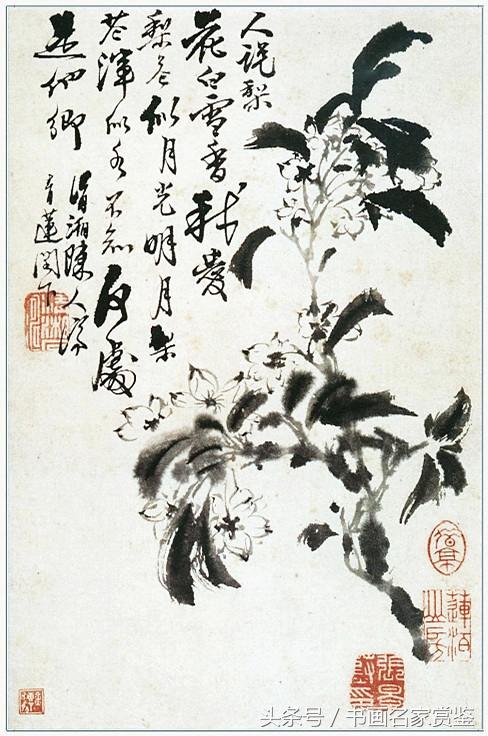 人說梨
花白雪香我愛
梨花似月光明月梨
花渾似水不知何處
是他鄉
清湘陳人濟
青蓮閣下
头条号 / 书画名家赏鉴